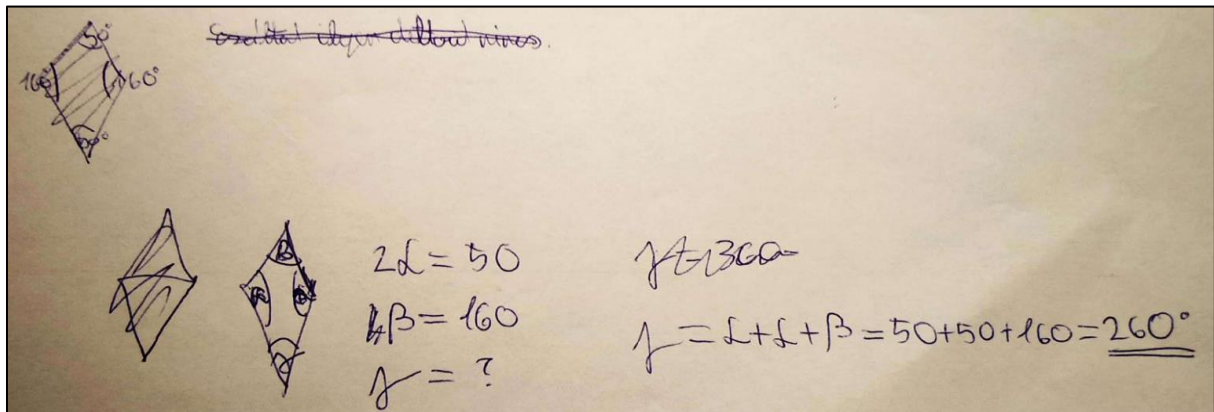 50°
160° 160°
50°
2α = 50
β = 160
γ = ?
γ = α+α+β = 50+50+160 = 260°